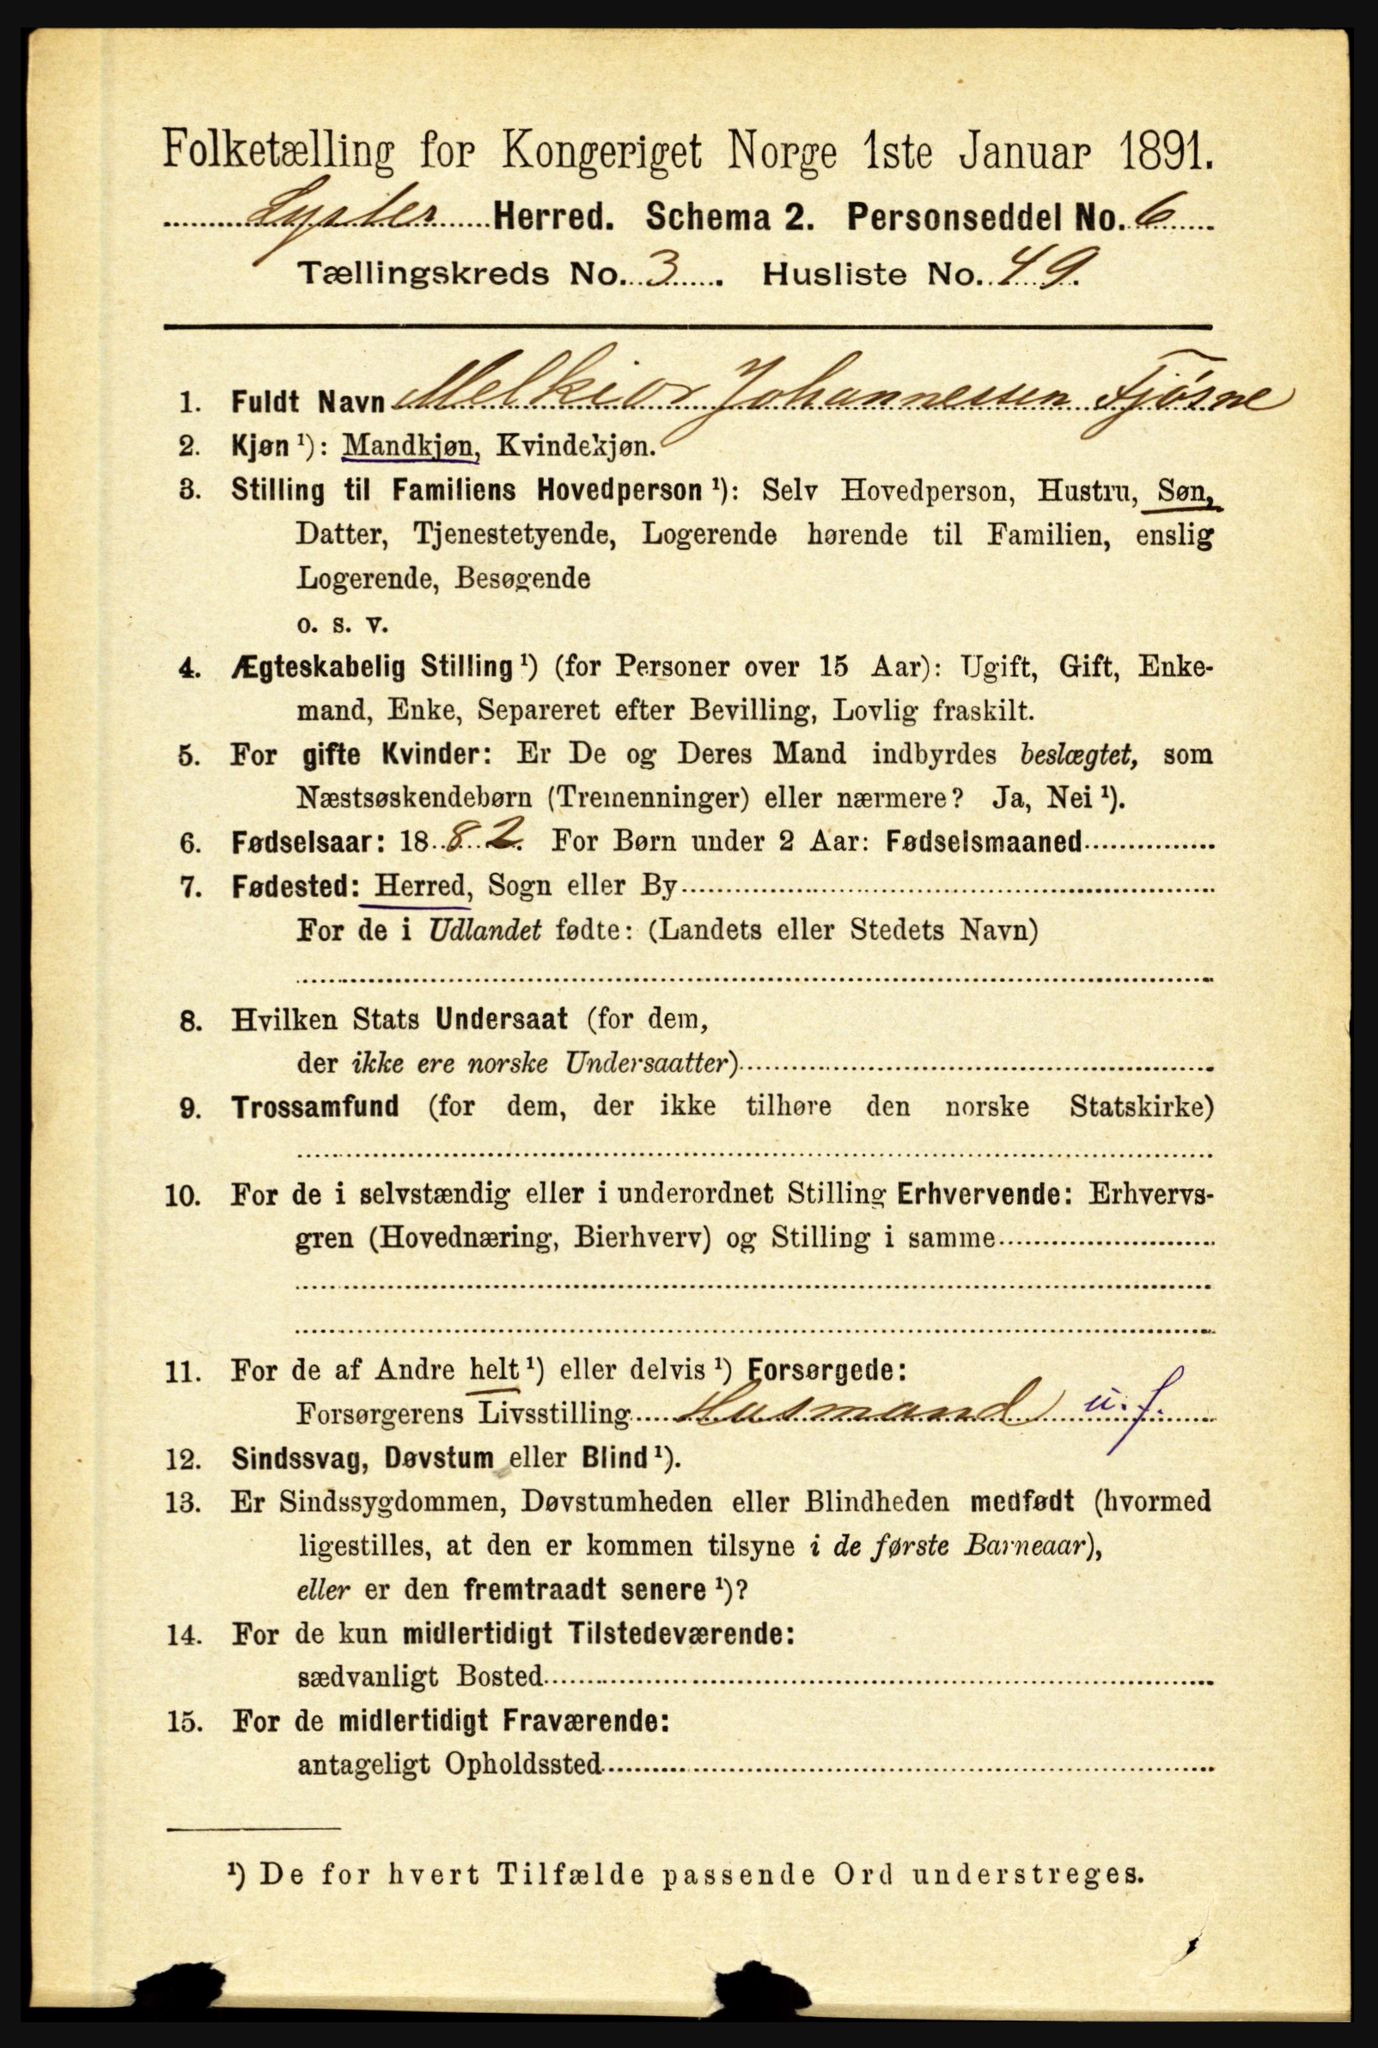 Folketælling for Kongeriget Norge 1ste Januar 1891.
Lyster Herred. Schema 2. Personseddel No. 6
Tællingskreds No. 3. Husliste No. 49.
1. Fuldt Navn Melkior Johannessen Fjøsne
2. Kjøn ¹): Mandkjøn, Kvindekjøn.
3. Stilling til Familiens Hovedperson ¹): Selv Hovedperson, Hustru, Søn,
Datter, Tjenestetyende, Logerende hørende til Familien, enslig
Logerende, Besøgende
o. s. v.
4. Ægteskabelig Stilling ¹) (for Personer over 15 Aar): Ugift, Gift, Enke-
mand, Enke, Separeret efter Bevilling, Lovlig fraskilt.
5. For gifte Kvinder: Er De og Deres Mand indbyrdes beslægtet, som
Næstsøskendebørn (Tremenninger) eller nærmere? Ja, Nei ¹).
6. Fødselsaar: 1882. For Børn under 2 Aar: Fødselsmaaned
7. Fødested: Herred, Sogn eller By
For de i Udlandet fødte: (Landets eller Stedets Navn)
8. Hvilken Stats Undersaat (for dem,
der ikke ere norske Undersaatter)
9. Trossamfund (for dem, der ikke tilhøre den norske Statskirke)
10. For de i selvstændig eller i underordnet Stilling Erhvervende: Erhvervs-
gren (Hovednæring, Bierhverv) og Stilling i samme
11. For de af Andre helt ¹) eller delvis ¹) Forsørgede:
Forsørgerens Livsstilling Husmand u. f.
12. Sindssvag, Døvstum eller Blind ¹).
13. Er Sindssygdommen, Døvstumheden eller Blindheden medfødt (hvormed
ligestilles, at den er kommen tilsyne i de første Barneaar),
eller er den fremtraadt senere ¹)?
14. For de kun midlertidigt Tilstedeværende:
sædvanligt Bosted
15. For de midlertidigt Fraværende:
antageligt Opholdssted
¹) De for hvert Tilfælde passende Ord understreges.